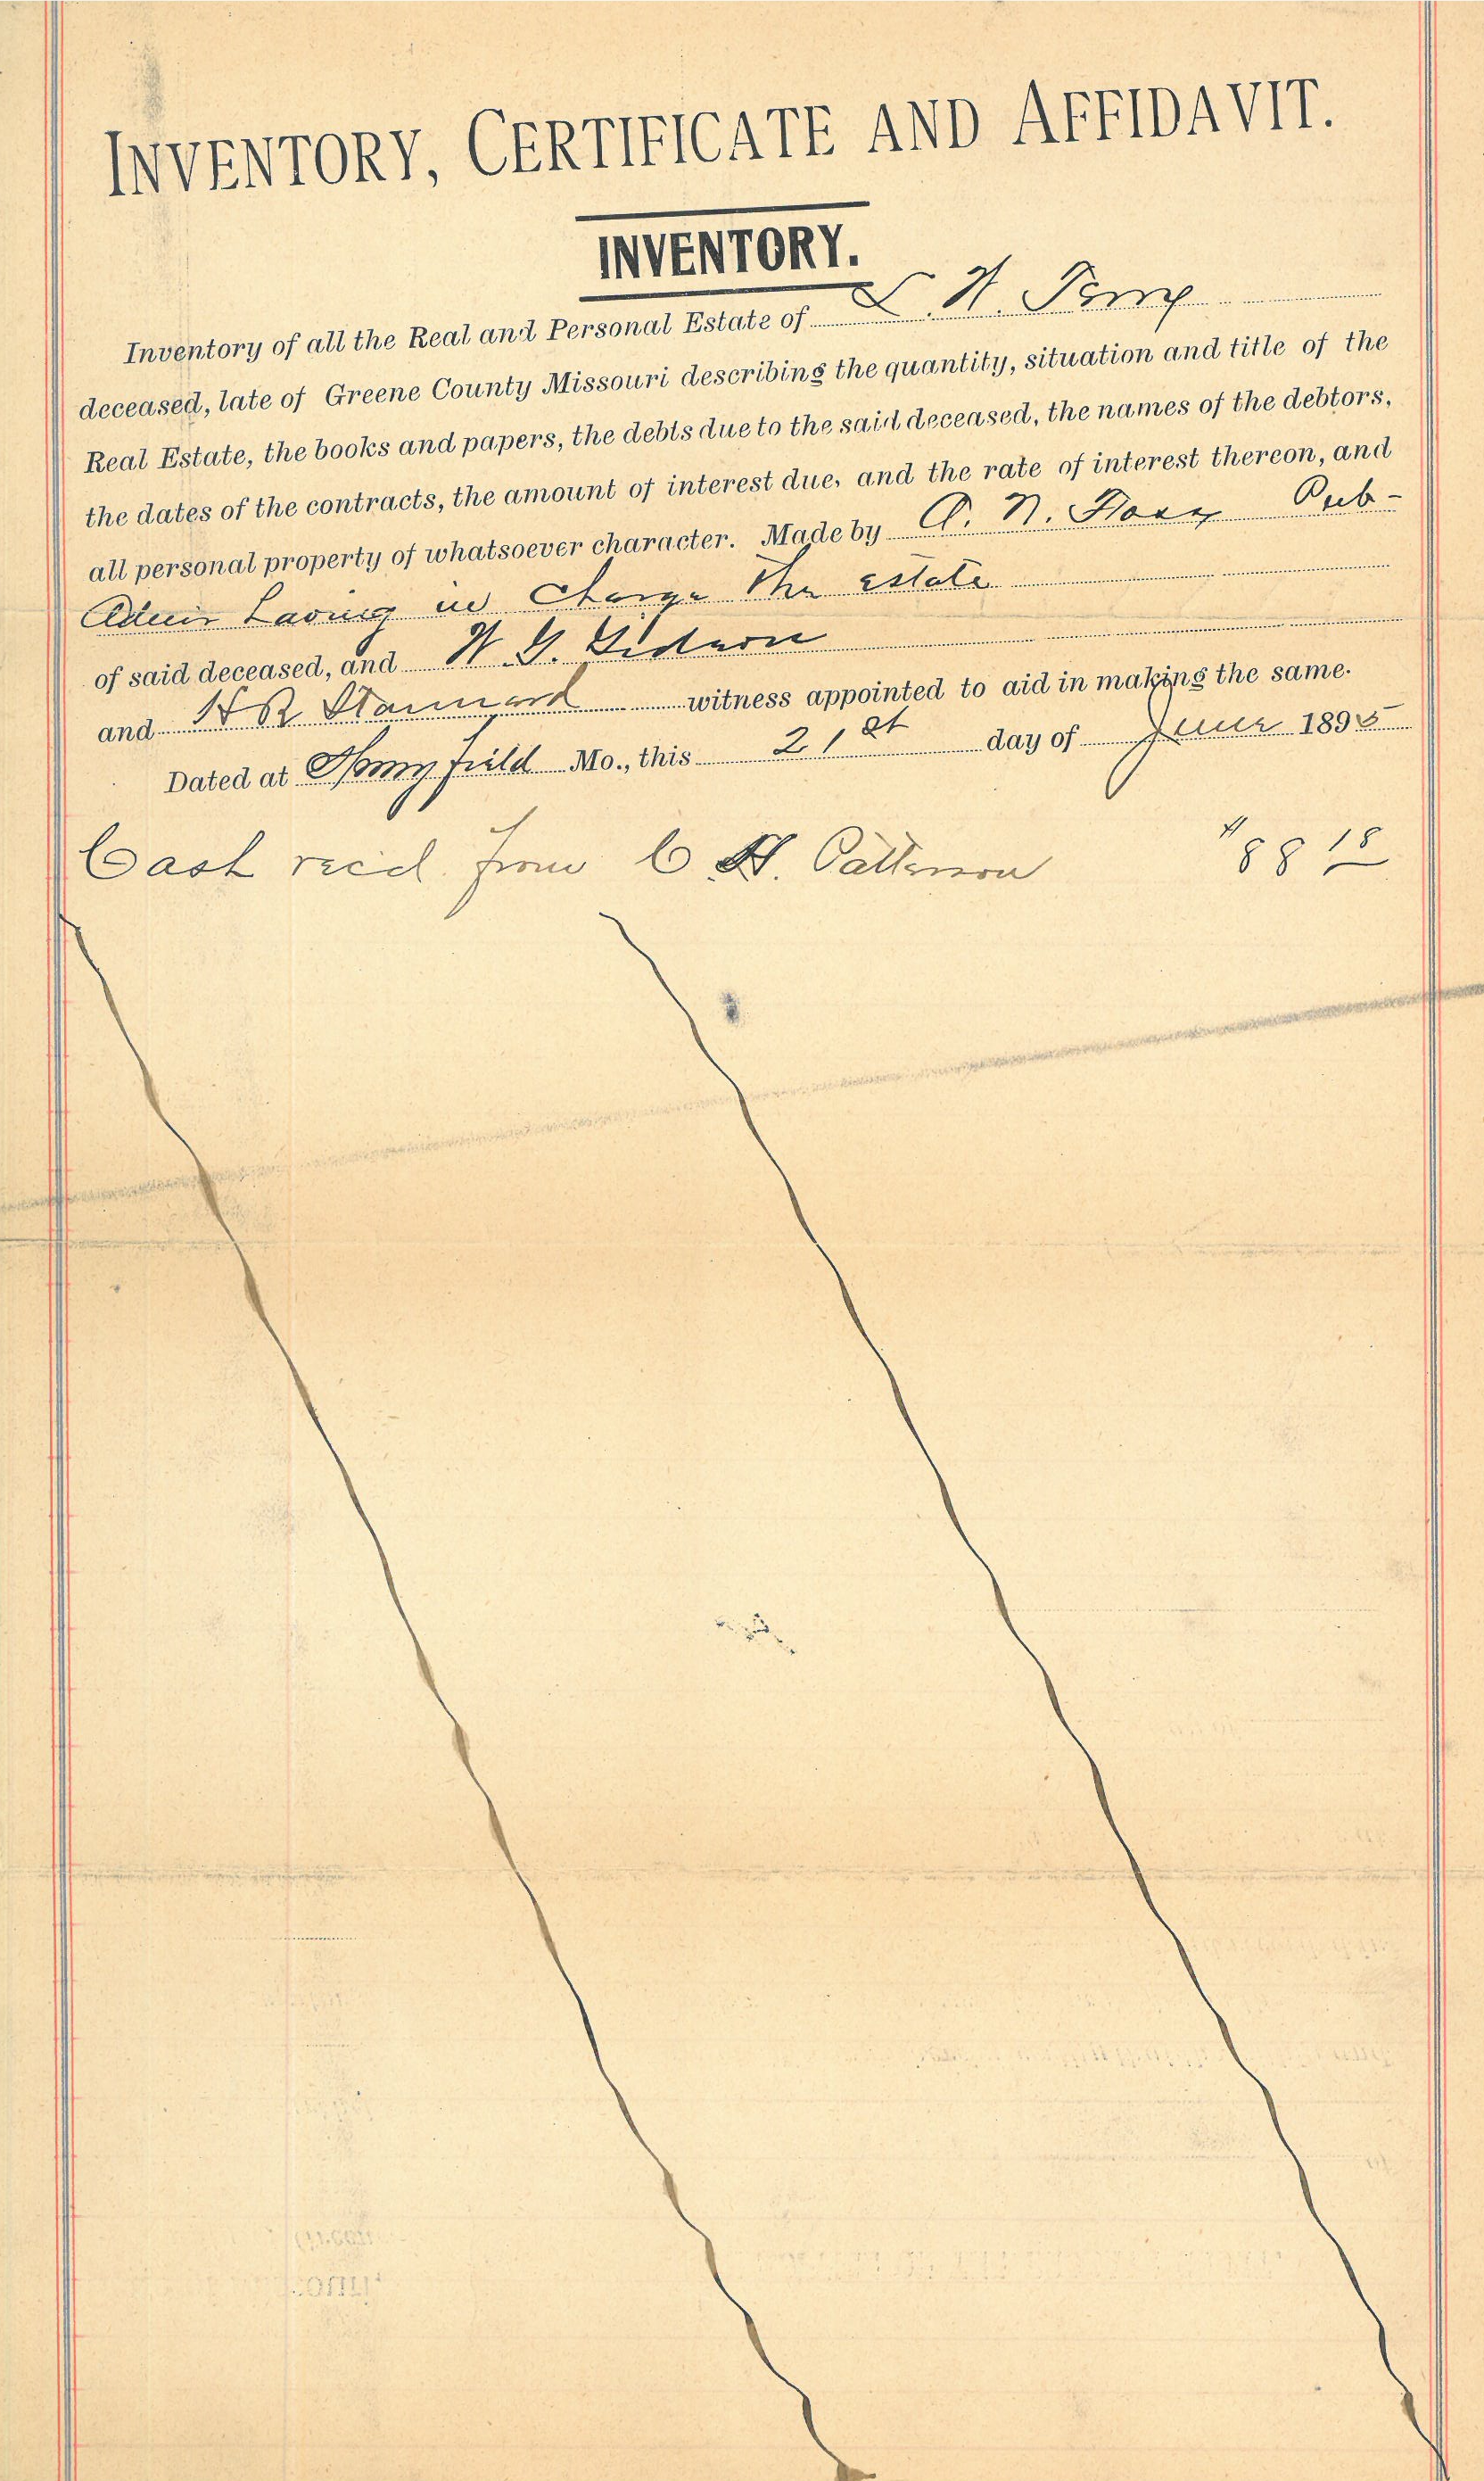 INVENTORY, CERTIFICATE AND AFFIDAVIT.
INVENTORY.
Inventory of all the Real and Personal Estate of L. H.
deceased, late of Greene County Missouri describing the quantity, situation and title of the
Real Estate, the books and papers, the debts due to the said deceased, the names of the debtors,
the dates of the contracts, the amount of interest due, and the rate of interest thereon, and
all personal property of whatsoever character. Made by A. N. Pub-
Admir having in charge the estate
of said deceased, and
and Stannard witness appointed to aid in making the same.
Dated at Mo., this 21st day of June 1895
Cash rec'd from C H. Patterson $88 18